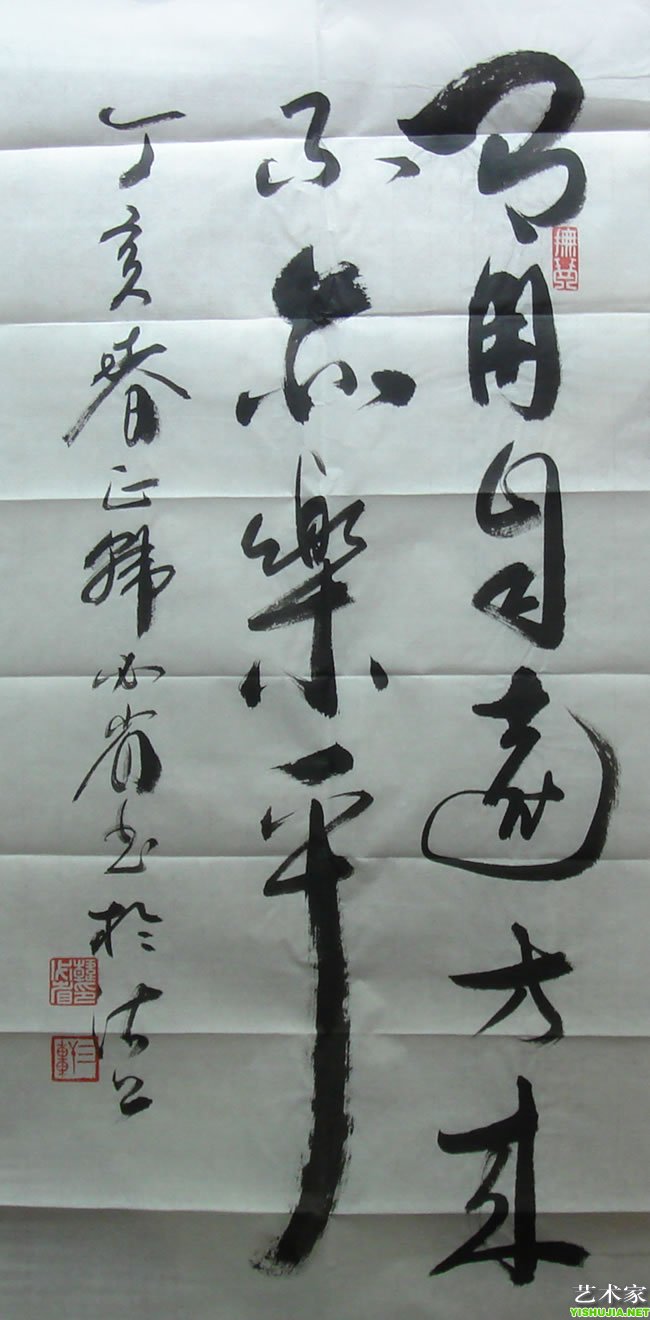 有朋自遠方來
不亦樂乎
丁亥春正韓必省书於沽上
艺术家
YISHUJIA.NET